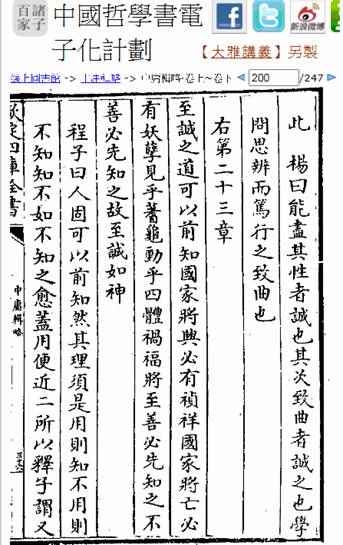 諸子
百家
中國哲學書電
子化計劃
f
新浪微博
【大雅講義】另製
線上圖書館 -> 中庸輯略 -> 中庸輯略·卷上~卷下
200
/247
此 楊曰能盡其性者誠也其次致曲者誠之也學
問思辨而篤行之致曲也
右第二十三章
至誠之道可以前知國家將興必有禎祥國家將亡必
有妖孽見乎蓍龜動乎四體禍福將至善必先知之不
善必先知之故至誠如神
程子曰人固可以前知然其理須是用則知不用則
不知知不如不知之愈蓋用便近二所以釋子謂又
欽定四庫全書
中庸輯略